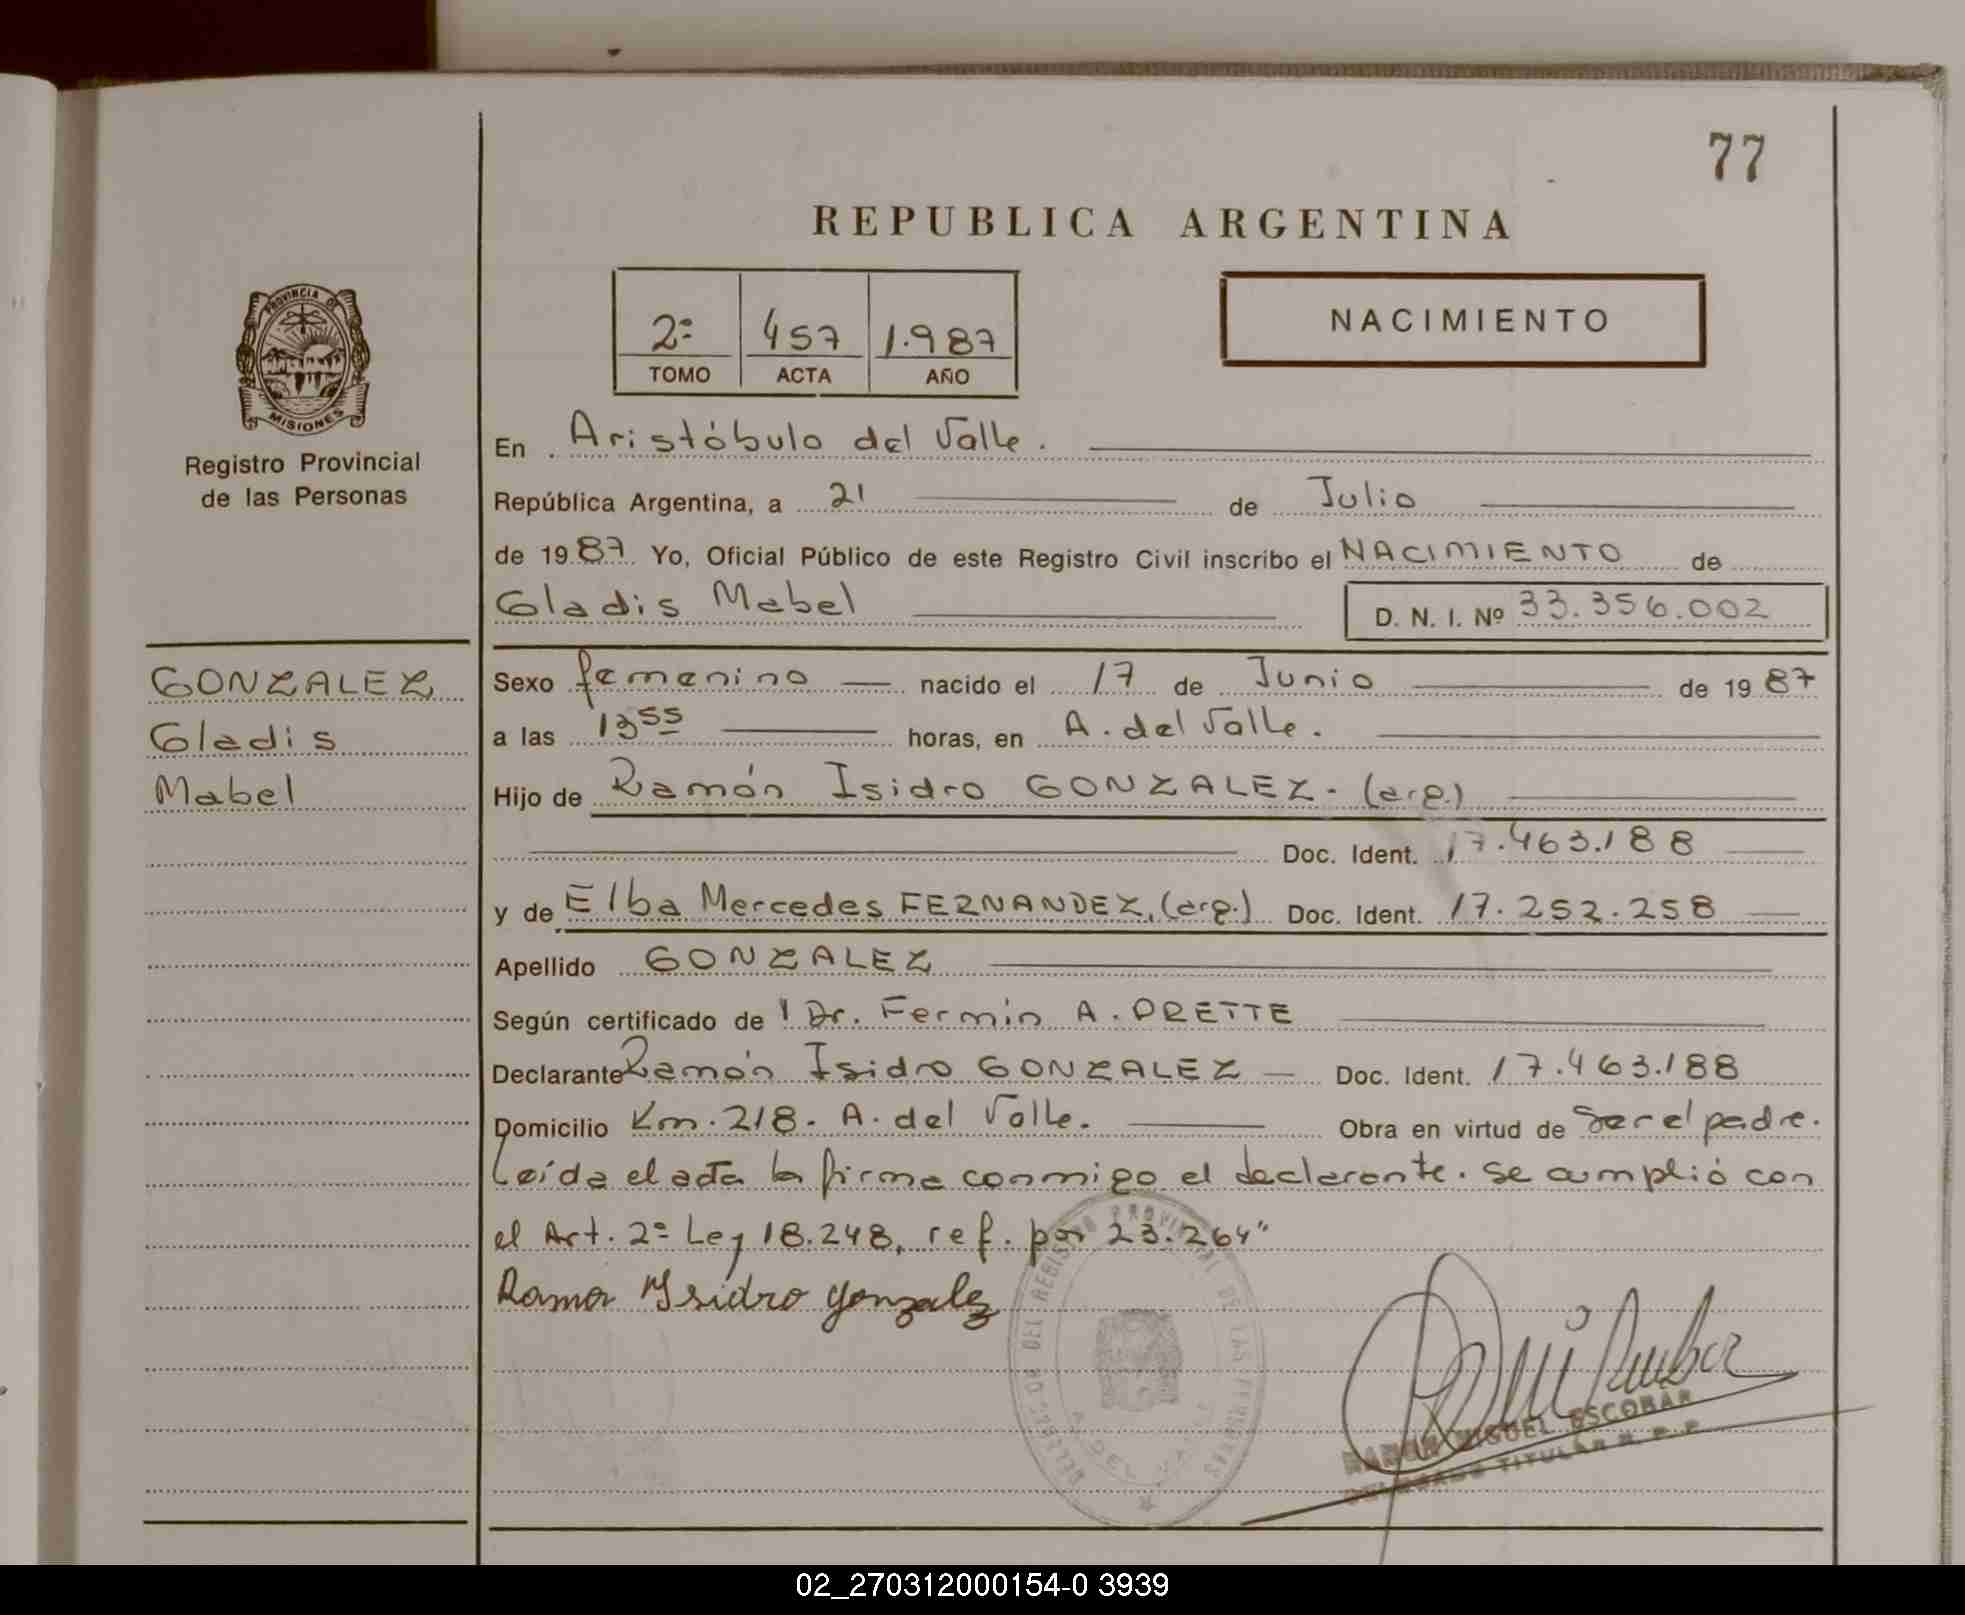 77
REPUBLICA ARGENTINA
PROVINCIA DE
MISIONES
Registro Provincial
de las Personas
2º 457 1.987
TOMO ACTA AÑO
NACIMIENTO
En Aristóbulo del Valle.
República Argentina, a 21 de Julio
de 1987 Yo, Oficial Público de este Registro Civil inscribo el NACIMIENTO de
Gladis Mabel D. N. I. Nº 33.356.002
GONZALEZ
Gladis
Mabel
Sexo femenino nacido el 17 de Junio de 1987
a las 13 55 horas, en A. del Valle.
Hijo de Ramón Isidro GONZALEZ. (arg.)
Doc. Ident. 17.463.188
y de Elba Mercedes FERNANDEZ, (arg.) Doc. Ident. 17.252.258
Apellido GONZALEZ
Según certificado de Dr. Fermín A. ORETTE
Declarante Ramón Isidro GONZALEZ Doc. Ident. 17.463.188
Domicilio Km. 218. A. del Valle. Obra en virtud de Ser el padre.
Leída el acta la firma conmigo el declarante. Se cumplió con
el Art. 2º Ley 18.248, ref. por 23.264"
Ramon Ysidro Gonzalez
DEL REGISTRO PROVINCIAL DE LAS PERSONAS
A. DEL VALLE
RAMON MIGUEL ESCOBAR
DELEGADO TITULAR R. P. P.
02_270312000154-0 3939